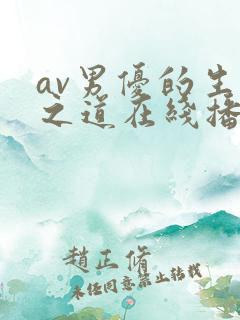 av男優的生
之道在綫播
趙正脩
未經同意禁止轉載